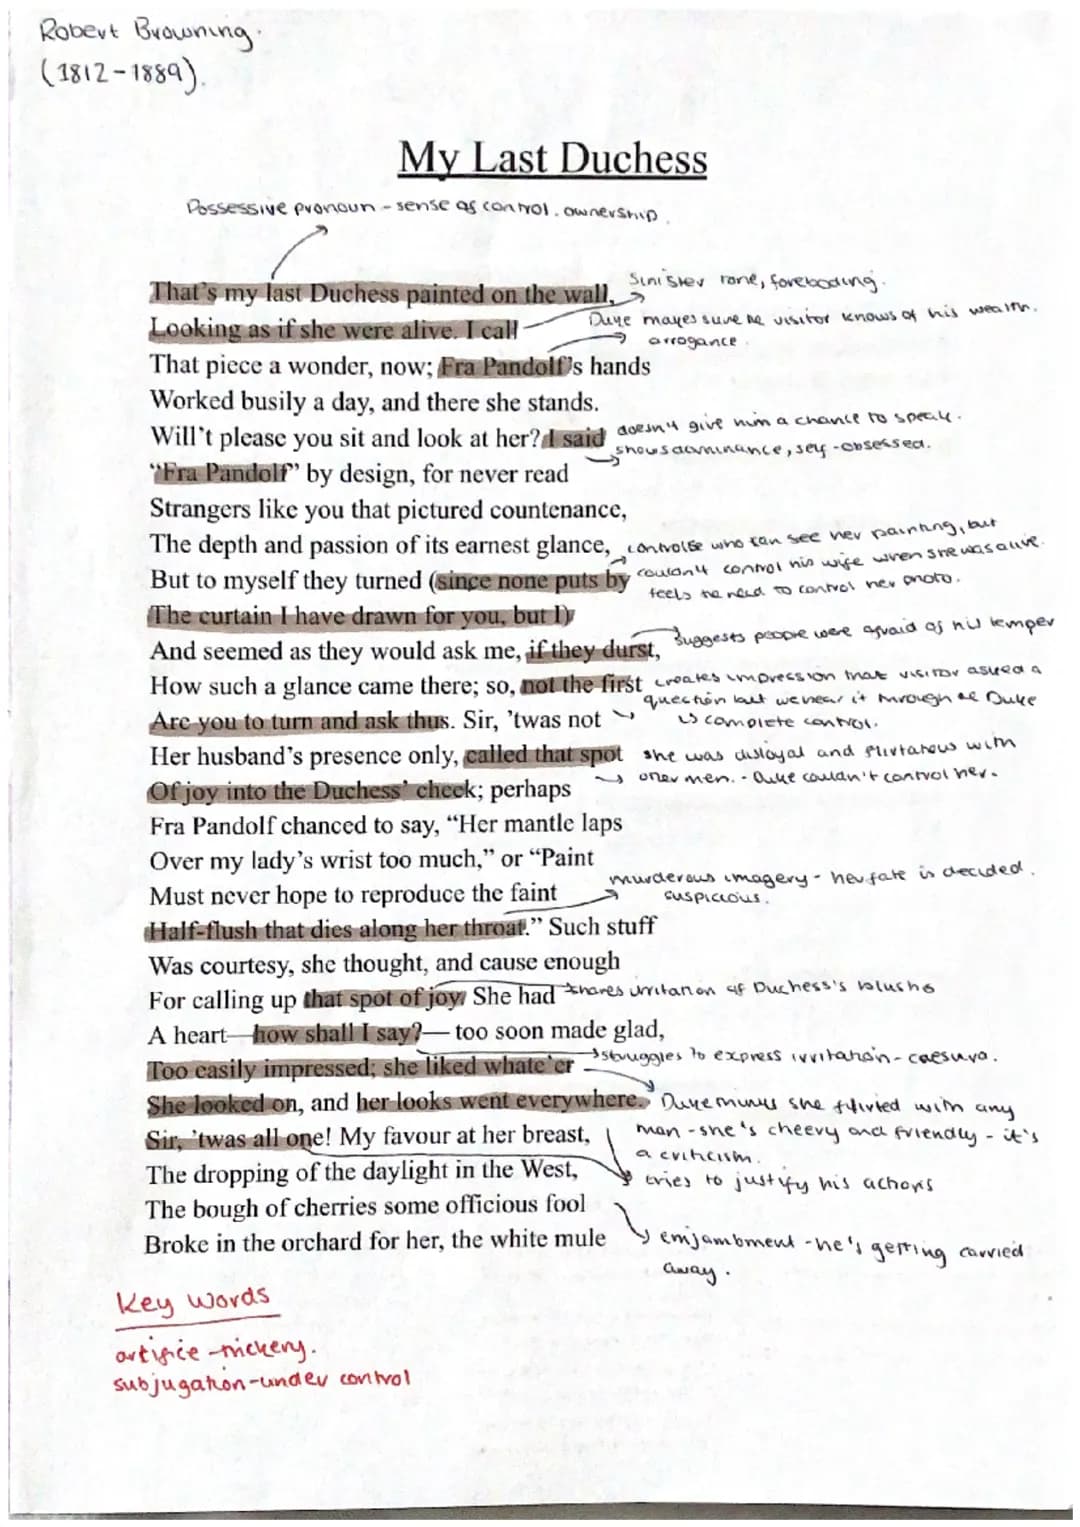 Robert Browning.
(1812-1889).
My Last Duchess
Possessive pronoun - sense of control. ownership.
That's my last Duchess painted on the wall,
Sinister tone, foreboding.
Looking as if she were alive. I call
Duke makes sure he visitor knows of his wealth.
arrogance.
That piece a wonder, now; Fra Pandolf's hands
Worked busily a day, and there she stands.
Will't please you sit and look at her? I said
doesn't give him a chance to speak.
shows dominance, self-obsessed.
"Fra Pandolf" by design, for never read
Strangers like you that pictured countenance,
The depth and passion of its earnest glance,
controlse who can see her painting, but
But to myself they turned (since none puts by
couldn't control his wife when she was alive.
feels the need to control her photo.
The curtain I have drawn for you, but I)
And seemed as they would ask me, if they durst,
suggests people were afraid of his temper
How such a glance came there; so, not the first
creates impression that visitor asked a
question but we hear it through the Duke
Are you to turn and ask thus. Sir, 'twas not
is complete control.
Her husband's presence only, called that spot
she was disloyal and flirtatous with
Of joy into the Duchess' cheek; perhaps
other men. - Duke couldn't control her.
Fra Pandolf chanced to say, "Her mantle laps
Over my lady's wrist too much," or "Paint
Must never hope to reproduce the faint
murderous imagery - her fate is decided.
suspicious.
Half-flush that dies along her throat." Such stuff
Was courtesy, she thought, and cause enough
For calling up that spot of joy. She had
shares irritation of Duchess's blushs
A heart—how shall I say?— too soon made glad,
struggles to express irritation - caesura.
Too easily impressed; she liked whate'er
She looked on, and her looks went everywhere.
Duke thinks she flirted with any
Sir, 'twas all one! My favour at her breast,
man - she's cheery and friendly - it's
a criticism.
The dropping of the daylight in the West,
tries to justify his actions
The bough of cherries some officious fool
Broke in the orchard for her, the white mule
emjambment - he's getting carried
away.
Key words
artifice - trickery.
subjugation - under control